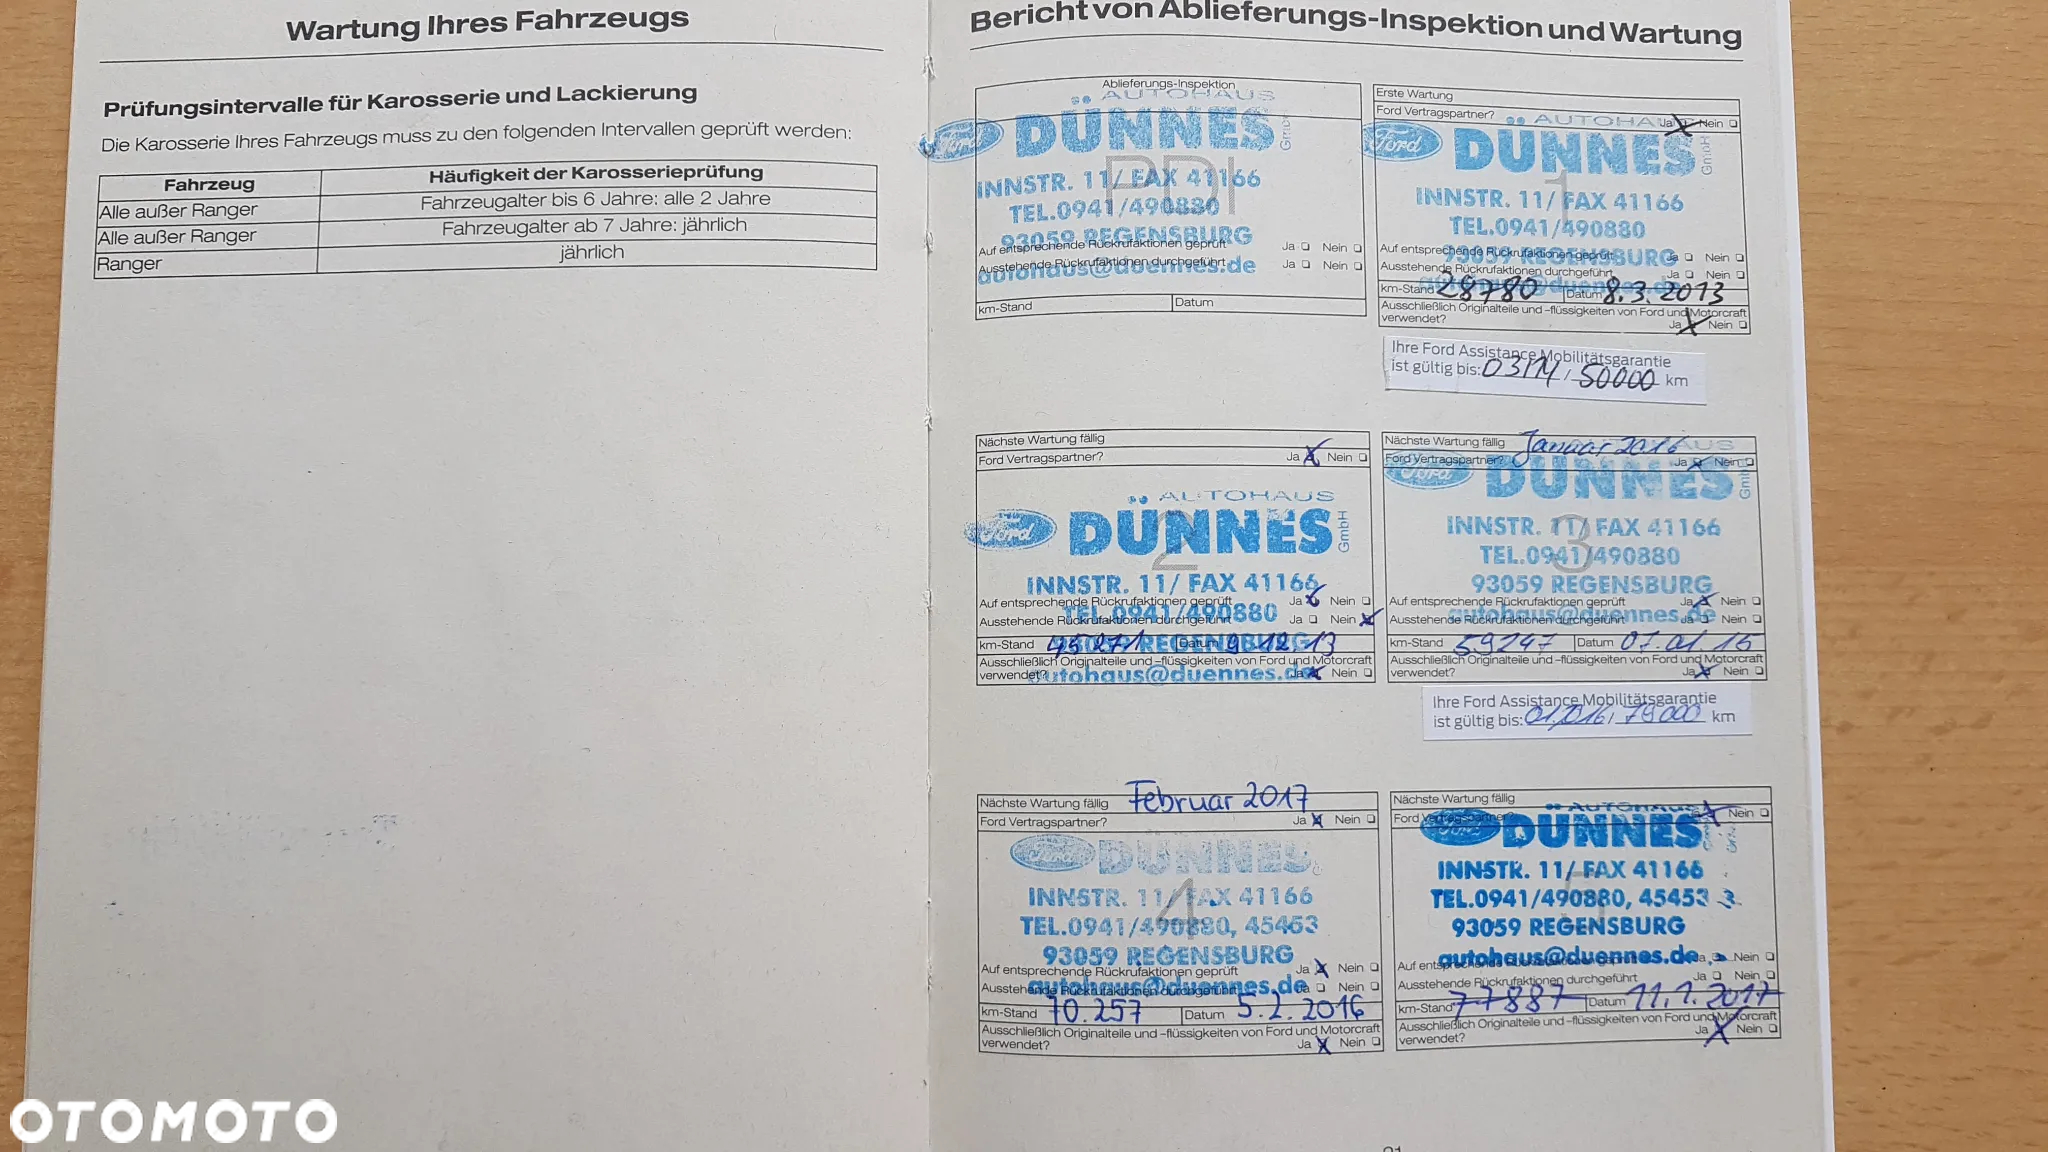 Wartung Ihres Fahrzeugs
Prüfungsintervalle für Karosserie und Lackierung
Die Karosserie Ihres Fahrzeugs muss zu den folgenden Intervallen geprüft werden:
Fahrzeug Häufigkeit der Karosserieprüfung
Alle außer Ranger Fahrzeugalter bis 6 Jahre: alle 2 Jahre
Alle außer Ranger Fahrzeugalter ab 7 Jahre: jährlich
Ranger jährlich
Bericht von Ablieferungs-Inspektion und Wartung
Ablieferungs-Inspektion
AUTOHAUS
Ford DÜNNES GmbH
PDI
INNSTR. 11/ FAX 41166
TEL.0941/490880
93059 REGENSBURG
Auf entsprechende Rückrufaktionen geprüft Ja Nein
Ausstehende Rückrufaktionen durchgeführt Ja Nein
autohaus@duennes.de
km-Stand Datum
Erste Wartung
Ford Vertragspartner? Ja Nein
AUTOHAUS
Ford DÜNNES GmbH
1
INNSTR. 11/ FAX 41166
TEL.0941/490880
93059 REGENSBURG
Auf entsprechende Rückrufaktionen geprüft Ja Nein
Ausstehende Rückrufaktionen durchgeführt Ja Nein
autohaus@duennes.de
km-Stand 28780 Datum 8.3.2013
Ausschließlich Originalteile und –flüssigkeiten von Ford und Motorcraft
verwendet? Ja Nein
Ihre Ford Assistance Mobilitätsgarantie
ist gültig bis: 03/14, 50000 km
Nächste Wartung fällig
Ford Vertragspartner? Ja Nein
AUTOHAUS
Ford DÜNNES GmbH
2
INNSTR. 11/ FAX 41166
Auf entsprechende Rückrufaktionen geprüft Ja Nein
TEL.0941/490880
Ausstehende Rückrufaktionen durchgeführt Ja Nein
93059 REGENSBURG
km-Stand 45271 Datum 9.12.13
Ausschließlich Originalteile und –flüssigkeiten von Ford und Motorcraft
verwendet? Ja Nein
autohaus@duennes.de
Nächste Wartung fällig Januar 2016
AUTOHAUS
Ford Vertragspartner? Ja Nein
Ford DÜNNES GmbH
INNSTR. 11/ FAX 41166
3
TEL.0941/490880
93059 REGENSBURG
Auf entsprechende Rückrufaktionen geprüft Ja Nein
autohaus@duennes.de
Ausstehende Rückrufaktionen durchgeführt Ja Nein
km-Stand 59247 Datum 07.01.15
Ausschließlich Originalteile und –flüssigkeiten von Ford und Motorcraft
verwendet? Ja Nein
Ihre Ford Assistance Mobilitätsgarantie
ist gültig bis: 79000 km
Nächste Wartung fällig Februar 2017
Ford Vertragspartner? Ja Nein
Ford DÜNNES
4
INNSTR. 11/ FAX 41166
TEL.0941/490880, 45453
93059 REGENSBURG
Auf entsprechende Rückrufaktionen geprüft Ja Nein
autohaus@duennes.de
Ausstehende Rückrufaktionen durchgeführt Ja Nein
km-Stand 70.257 Datum 5.2.2016
Ausschließlich Originalteile und –flüssigkeiten von Ford und Motorcraft
verwendet? Ja Nein
Nächste Wartung fällig
AUTOHAUS
Ford Vertragspartner? Ja Nein
Ford DÜNNES
INNSTR. 11/ FAX 41166
5
TEL.0941/490880, 45453
93059 REGENSBURG
autohaus@duennes.de
Auf entsprechende Rückrufaktionen geprüft Ja Nein
Ausstehende Rückrufaktionen durchgeführt Ja Nein
km-Stand 77887 Datum 11.1.2017
Ausschließlich Originalteile und –flüssigkeiten von Ford und Motorcraft
verwendet? Ja Nein
OTOMOTO